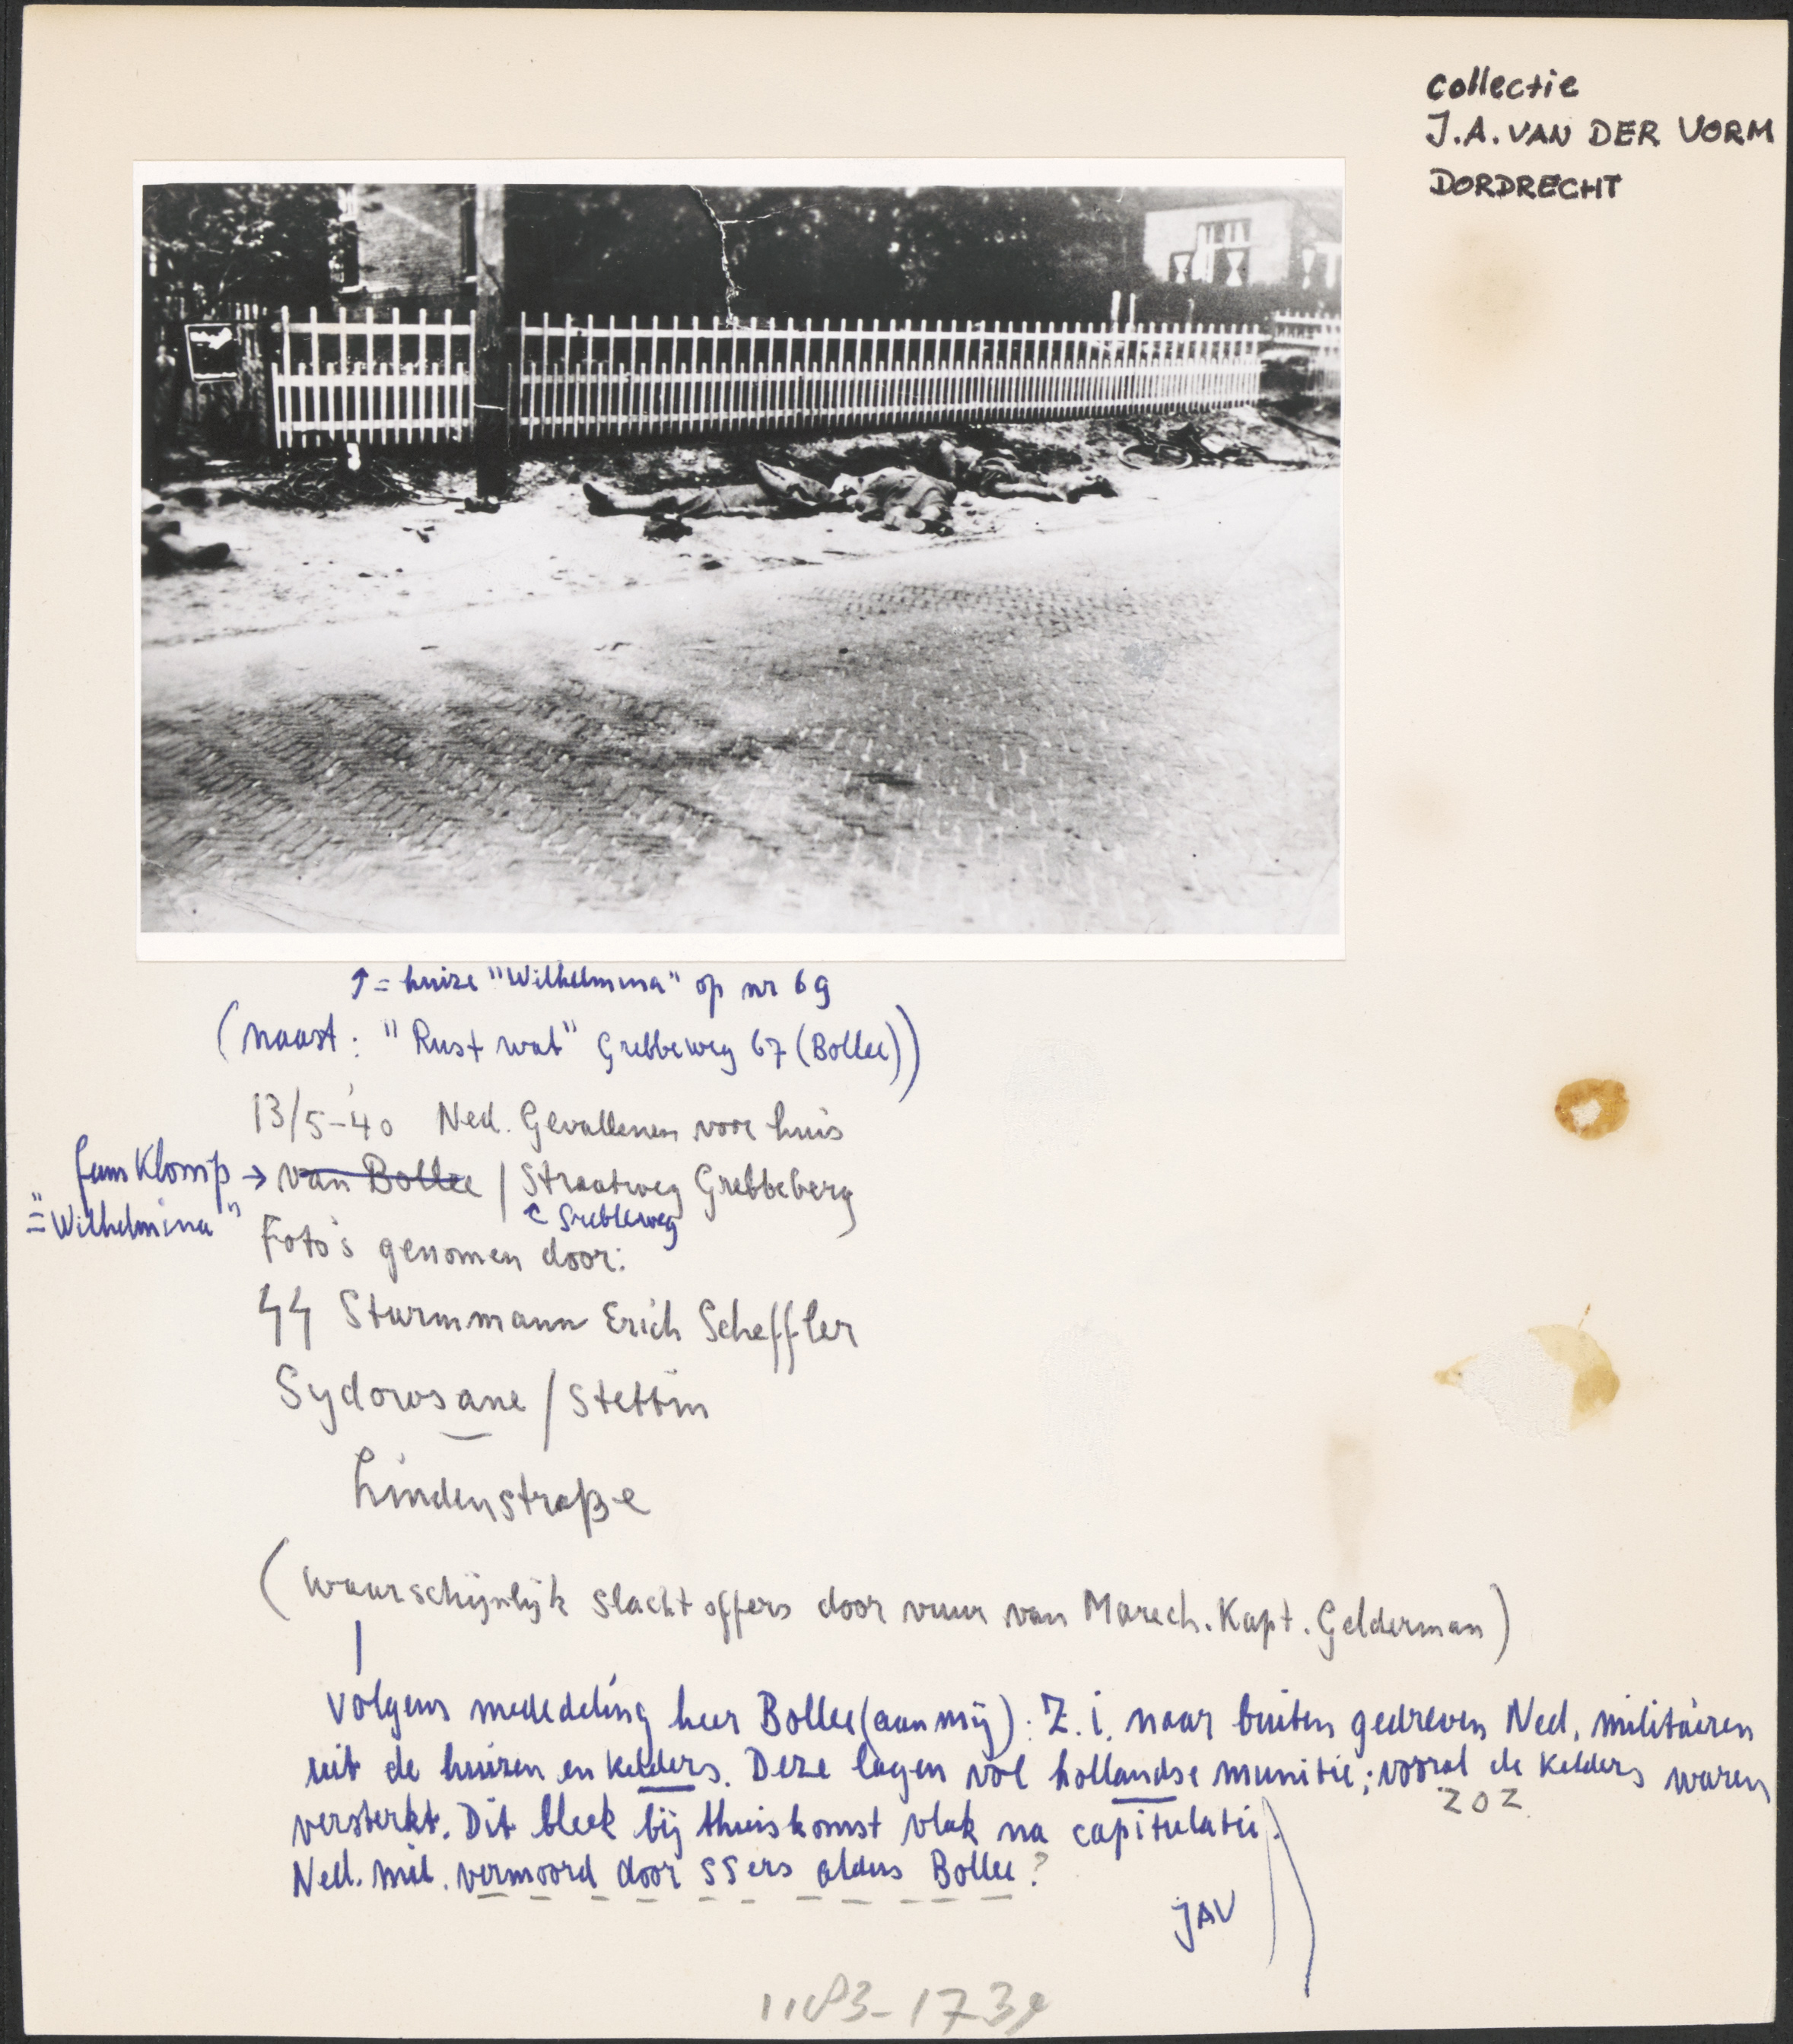 collectie
J.A. VAN DER VORM
DORDRECHT
↑ = huize "Wilhelmina" op nr 69
(naast: "Rust wat" Grebbeweg 67 (Bollee))
13/5-'40 Ned. Gevallenen voor huis
fam Klomp → van Bollee / Straatweg Grebbeberg
= "Wilhelmina"
Grebbeweg
Foto's genomen door:
SS Sturmmann Erich Scheffler
Sydowsaue / Stettin
Lindenstraße
(waarschijnlijk slachtoffers door vuur van Marech. Kapt. Gelderman)
Volgens mededeling heer Bollee (aan mij): Z.i. naar buiten gedreven Ned. militairen
uit de huizen en kelders. Deze lagen vol hollandse munitie; vooral de kelders waren
versterkt. Dit bleek bij thuiskomst vlak na capitulatie.
ZOZ
Ned. mil. vermoord door SSers aldus Bollee?
JAV